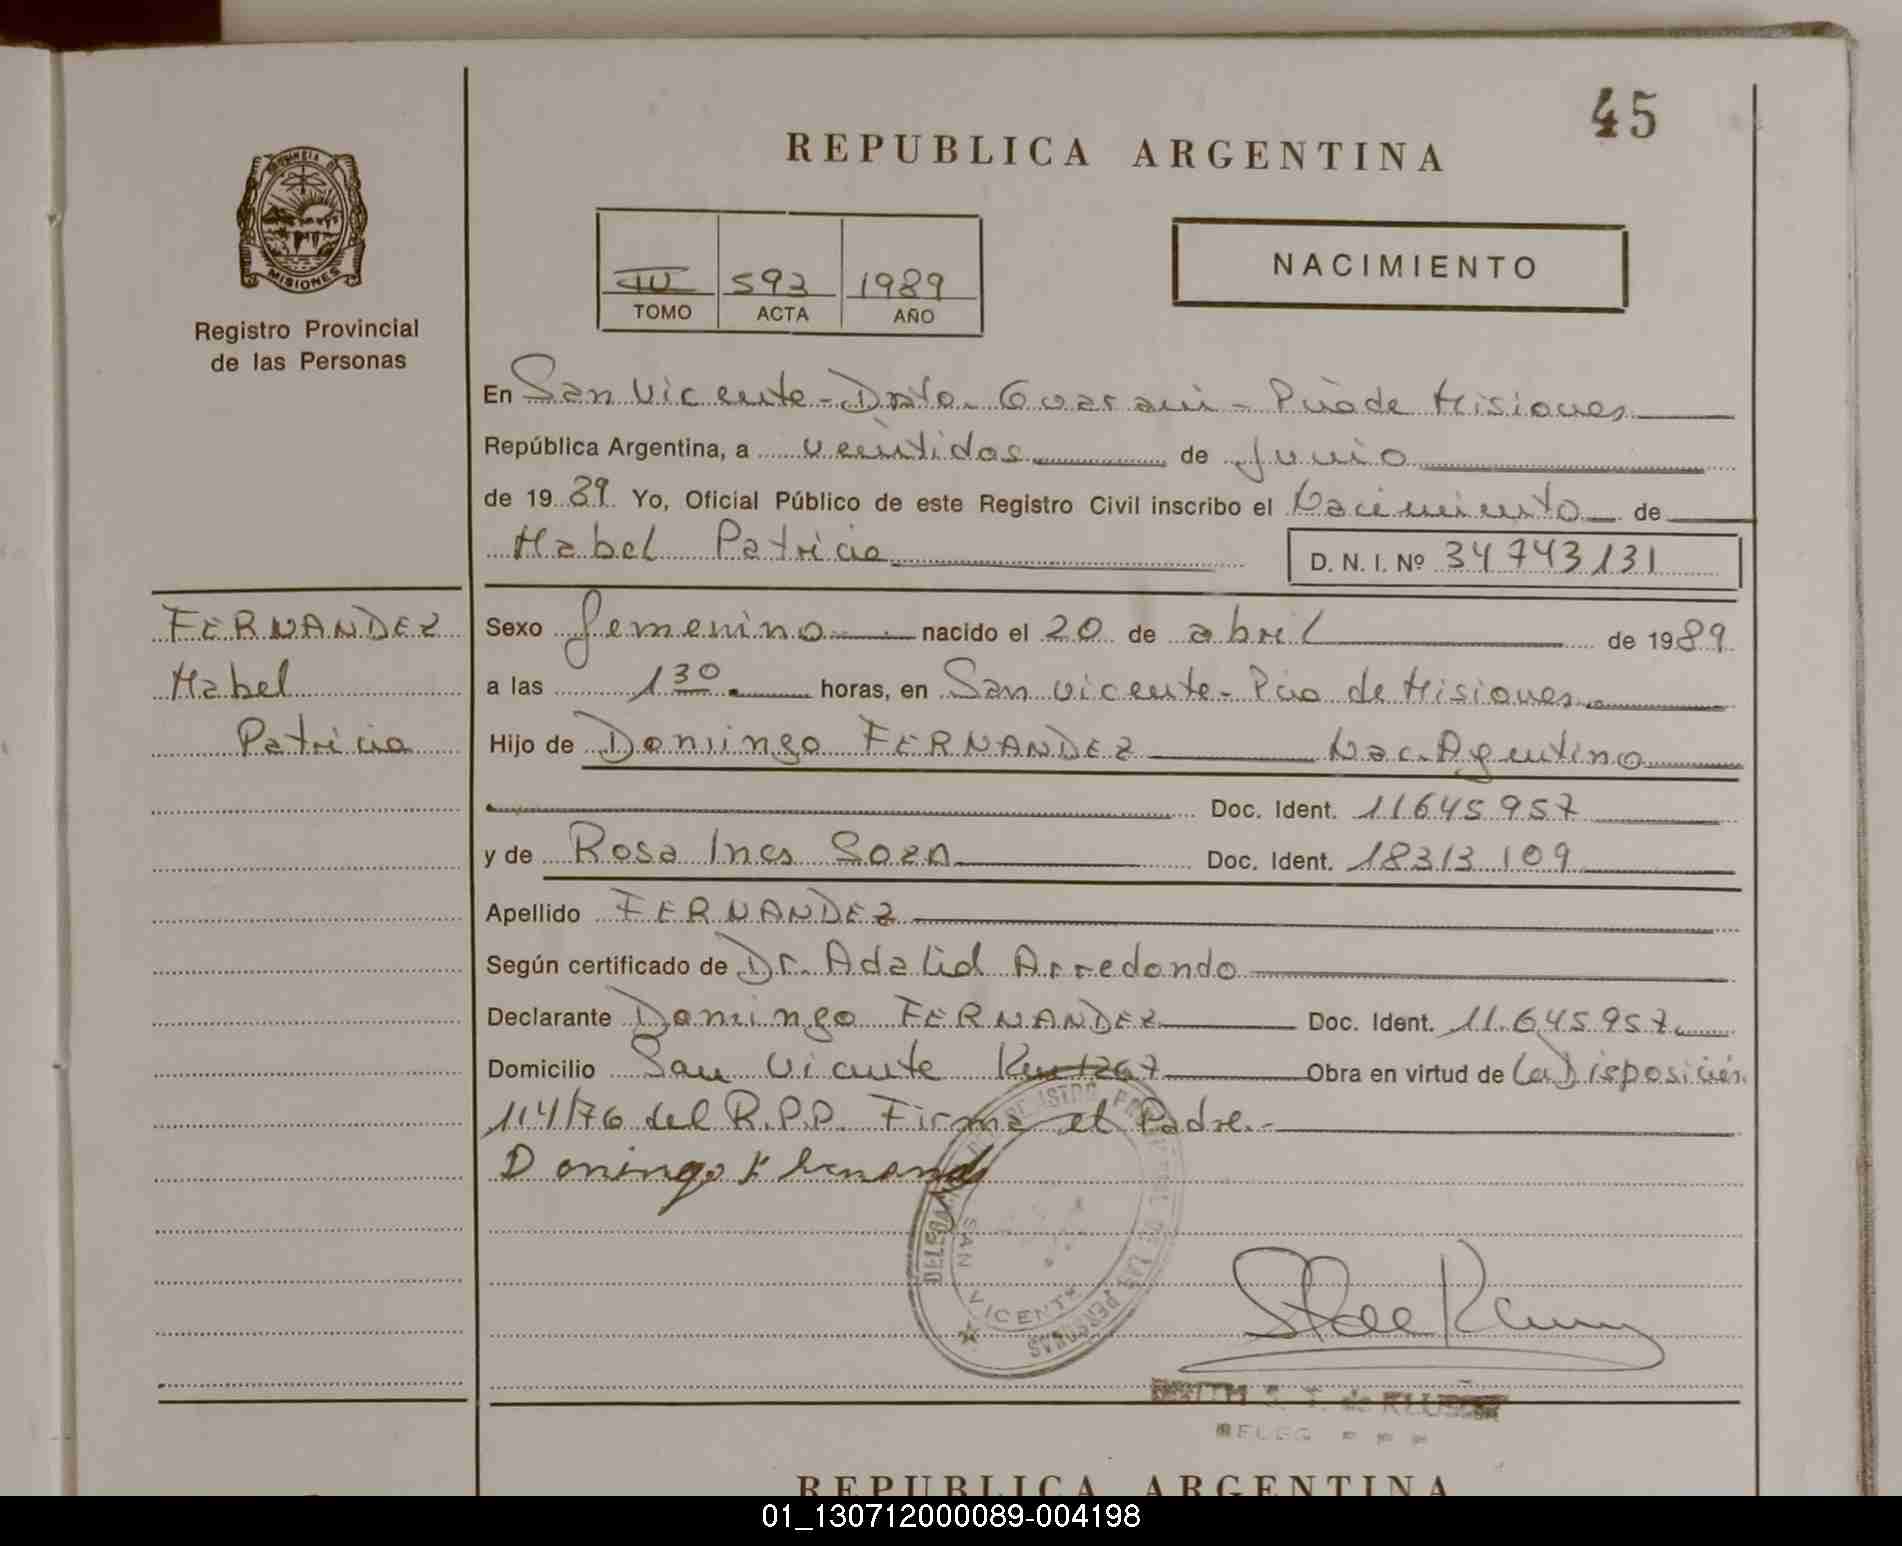 45
REPUBLICA ARGENTINA
PROVINCIA DE MISIONES
Registro Provincial
de las Personas
593 1989
TOMO ACTA AÑO
NACIMIENTO
En San Vicente - Dpto. Guarani - Pcia de Misiones
República Argentina, a veintidos de Junio
de 1989 Yo, Oficial Público de este Registro Civil inscribo el Nacimiento de
Mabel Patricia D. N. I. Nº 34743131
FERNANDEZ
Mabel
Patricia
Sexo femenino nacido el 20 de abril de 1989
a las 1 30 horas, en San Vicente - Pcia de Misiones
Hijo de Domingo FERNANDEZ Nac. Argentino
Doc. Ident. 11645957
y de Rosa Ines Doc. Ident. 18313109
Apellido FERNANDEZ
Según certificado de Dr. Adalid Arredondo
Declarante Domingo FERNANDEZ Doc. Ident. 11.645957
Domicilio San Vicente Obra en virtud de la Disposición
114/76 del R.P.P. Firma el Padre.-
Domingo
REGISTRO PROVINCIAL DE LAS PERSONAS
SAN VICENTE
S. T. de
DELEG
REPUBLICA ARGENTINA
01_130712000089-004198